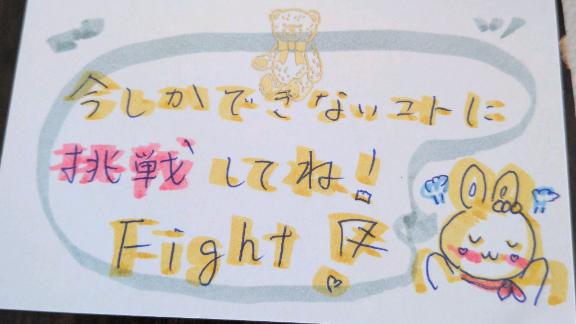 今しかできないコトに
挑戦してね!
Fight